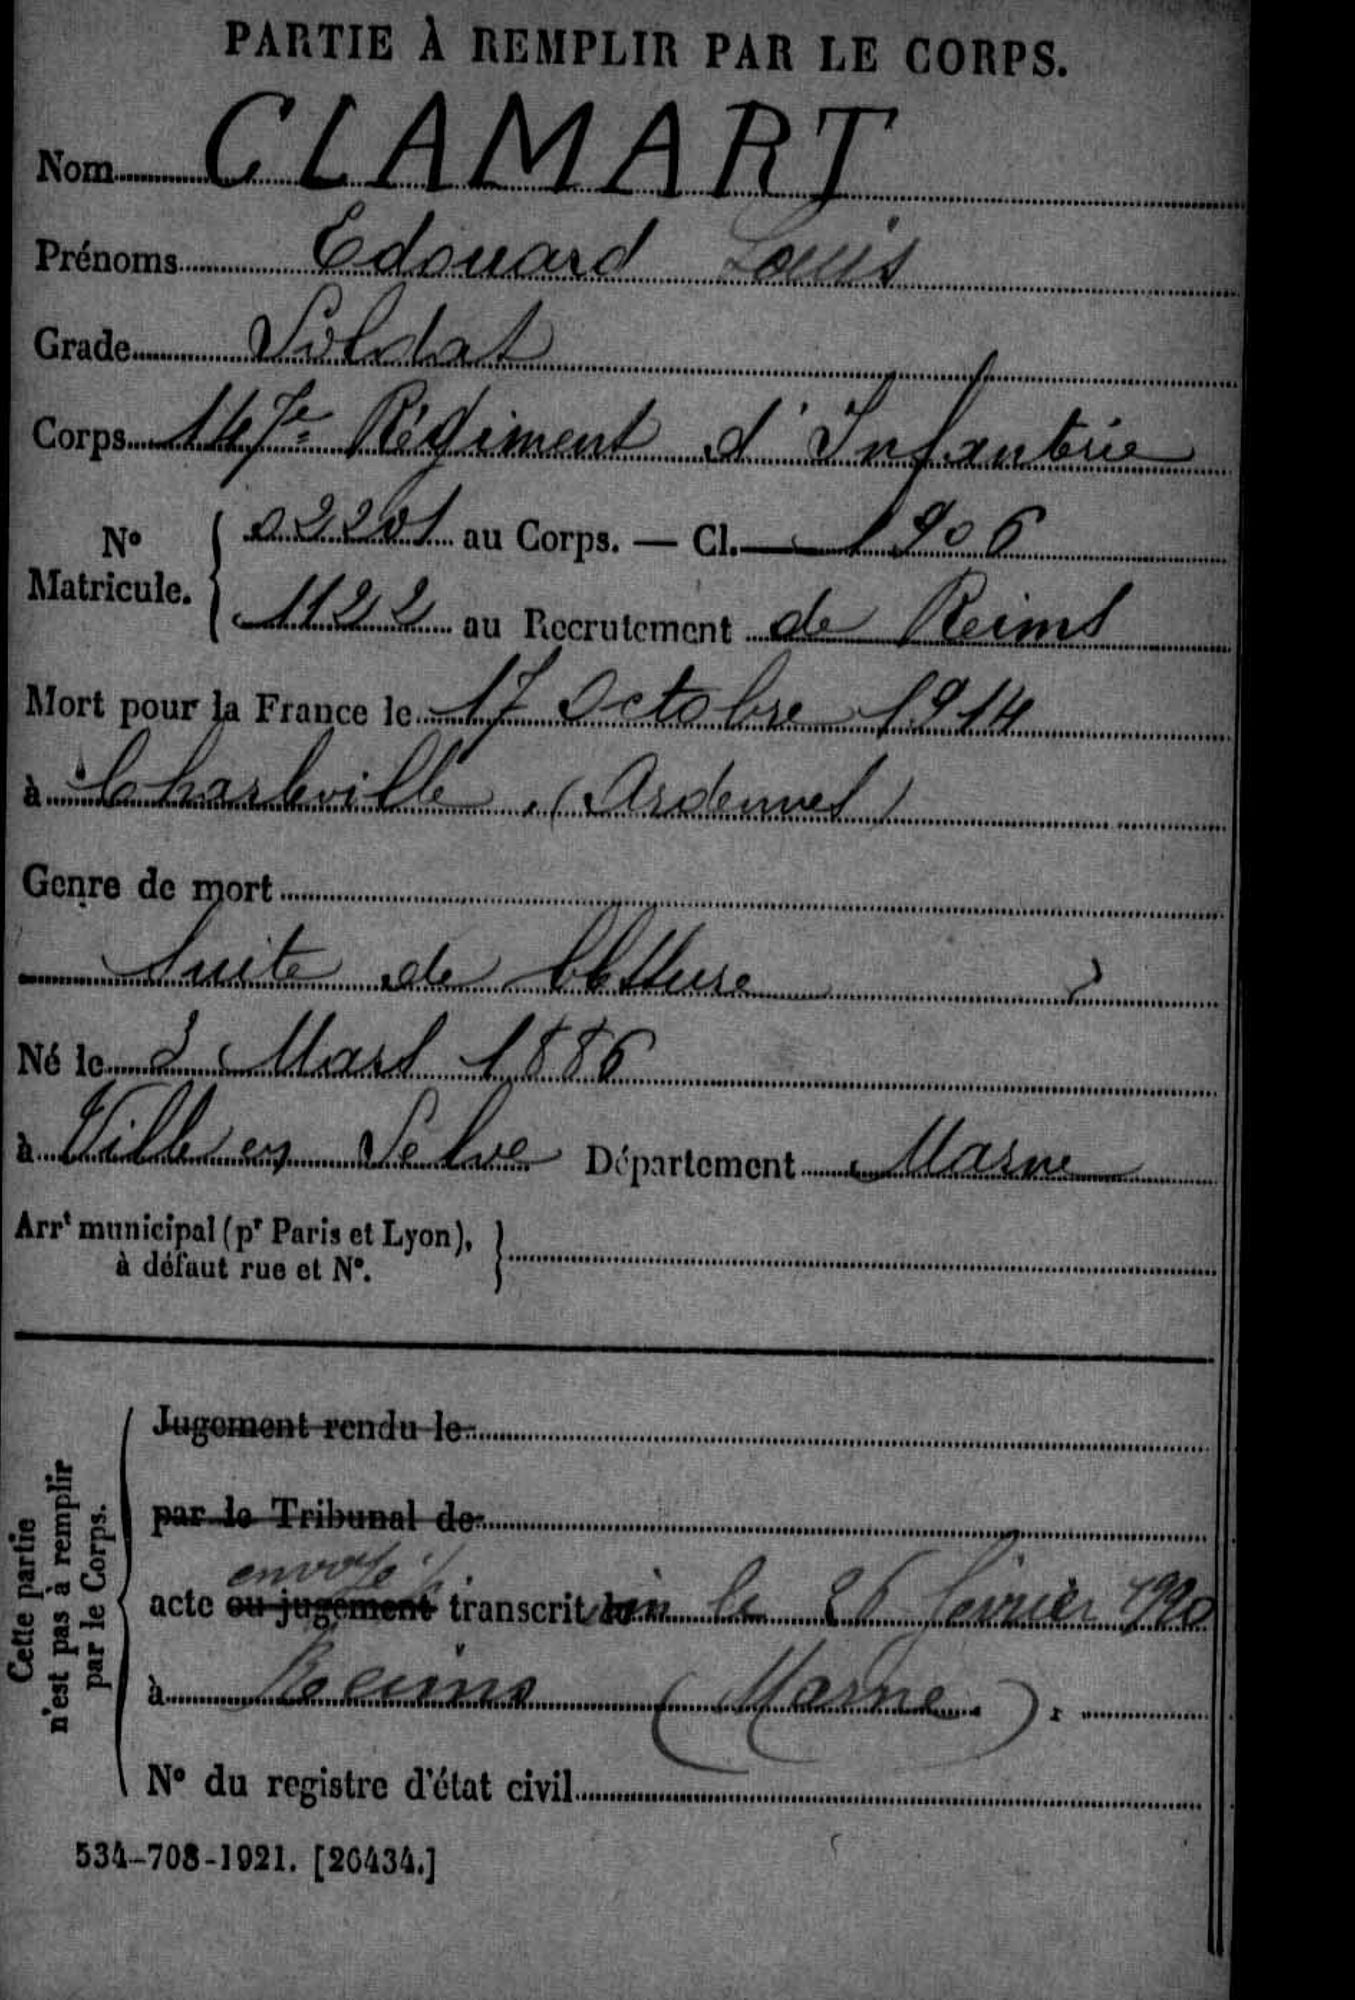 PARTIE À REMPLIR PAR LE CORPS.
Nom CLAMART
Prénoms Edouard Louis
Grade Soldat
Corps 147e Régiment d'Infanterie
N° Matricule. { 02201 au Corps. — Cl. 1906
1122 au Recrutement de Reims
Mort pour la France le 17 Octobre 1914
à Charleville (Ardennes)
Genre de mort
Suite de blessure
Né le 3 Mars 1886
à Ville en Selve Département Marne
Arrt municipal (pr Paris et Lyon),
à défaut rue et N°.
Cette partie
n'est pas à remplir
par le Corps.
Jugement rendu le
par le Tribunal de
envoyé
acte ou jugement transcrit le 26 février 1920
à Reims (Marne).
N° du registre d'état civil
534-708-1921. [26434.]